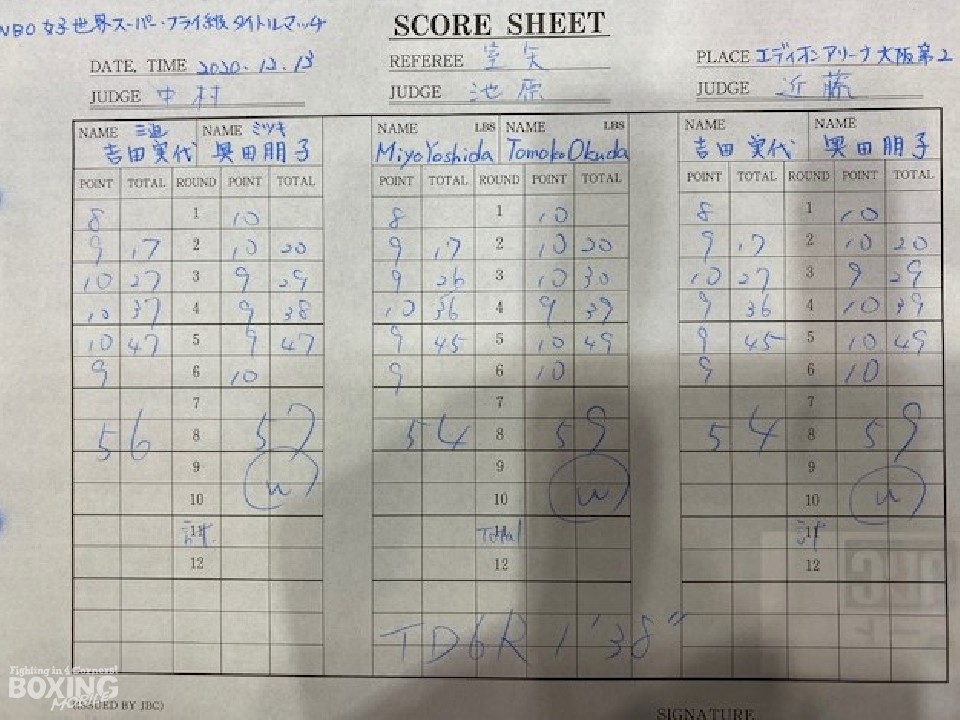 WBO女子世界スーパー・フライ級タイトルマッチ
SCORE SHEET
DATE, TIME 2020.12.13 REFEREE 室矢 PLACE エディオンアリーナ大阪第2
JUDGE 中村 JUDGE 池原 JUDGE 近藤
NAME 三迫 NAME ミツキ NAME LBS NAME LBS NAME NAME
吉田実代 奥田朋子 Miyo Yoshida Tomoko Okuda 吉田実代 奥田朋子
POINT TOTAL ROUND POINT TOTAL POINT TOTAL ROUND POINT TOTAL POINT TOTAL ROUND POINT TOTAL
8 1 10 8 1 10 8 1 10
9 17 2 10 20 9 17 2 10 20 9 17 2 10 20
10 27 3 9 29 9 26 3 10 30 10 27 3 9 29
10 37 4 9 38 10 36 4 9 39 9 36 4 10 39
10 47 5 9 47 9 45 5 10 49 9 45 5 10 49
9 6 10 9 6 10 9 6 10
7 7 7
56 8 57 54 8 59 54 8 59
9 9 9
10 W 10 W 10 W
計 Total 計
12 12 12
TD6R 1'38"
Fighting in 4 Corners!
BOXING
MOBILE
ISSUED BY JBC)
SIGNATURE